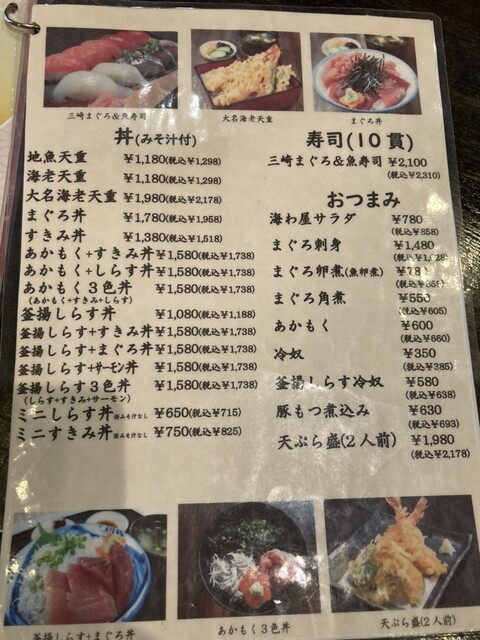 三崎まぐろ&魚寿司
大名海老天重
まぐろ丼
丼(みそ汁付)
地魚天重 ¥1,180(税込¥1,298)
海老天重 ¥1,180(税込¥1,298)
大名海老天重 ¥1,980(税込¥2,178)
まぐろ丼 ¥1,780(税込¥1,958)
すきみ丼 ¥1,380(税込¥1,518)
あかもく+すきみ丼 ¥1,580(税込¥1,738)
あかもく+しらす丼 ¥1,580(税込¥1,738)
あかもく3色丼 ¥1,580(税込¥1,738)
(あかもく+すきみ+しらす)
釜揚しらす丼 ¥1,080(税込¥1,188)
釜揚しらす+すきみ丼 ¥1,580(税込¥1,738)
釜揚しらす+まぐろ丼 ¥1,580(税込¥1,738)
釜揚しらす+サーモン丼 ¥1,580(税込¥1,738)
釜揚しらす3色丼 ¥1,580(税込¥1,738)
(しらす+すきみ+サーモン)
ミニしらす丼 ※みそ汁なし ¥650(税込¥715)
ミニすきみ丼 ※みそ汁なし ¥750(税込¥825)
寿司(10貫)
三崎まぐろ&魚寿司 ¥2,100
(税込¥2,310)
おつまみ
海わ屋サラダ ¥780
(税込¥858)
まぐろ刺身 ¥1,480
まぐろ卵煮(魚卵煮)
まぐろ角煮 ¥550
(税込¥605)
あかもく ¥600
(税込¥660)
冷奴 ¥350
(税込¥385)
釜揚しらす冷奴 ¥580
(税込¥638)
豚もつ煮込み ¥630
(税込¥693)
天ぷら盛(2人前) ¥1,980
(税込¥2,178)
釜揚しらす+まぐろ丼
あかもく3色丼
天ぷら盛(2人前)